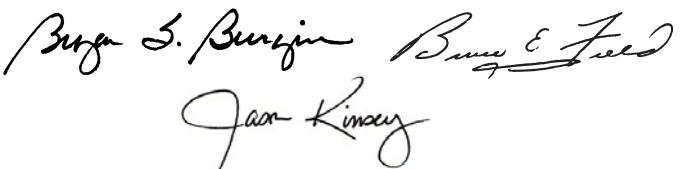 Bryan S. Burgin Bruce E. Field
Jason Kinsey